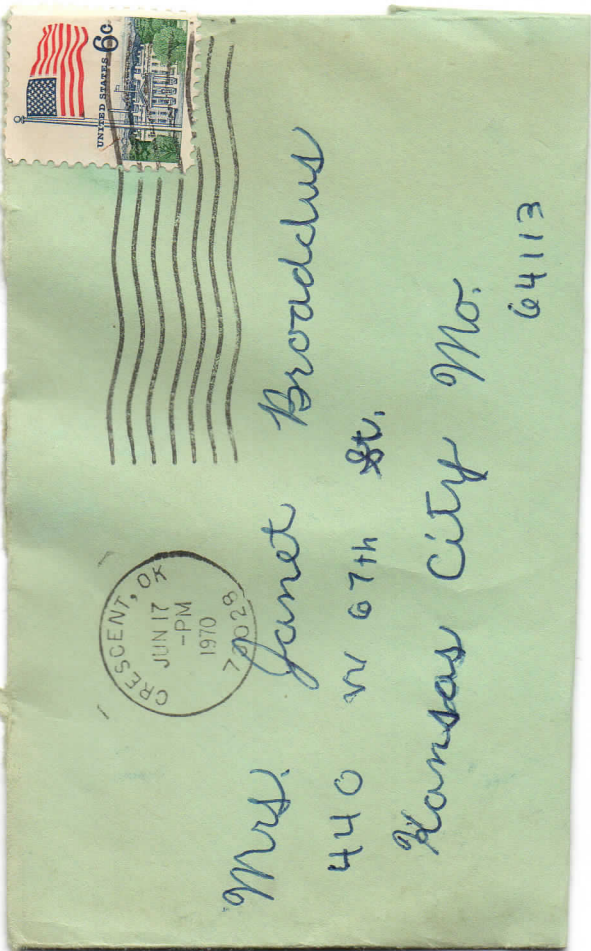 UNITED STATES 6c
CRESCENT, OK
JUN 17
-PM
1970
73028
Mrs. Janet Broaddus
440 W 67th St.
Kansas City Mo.
64113